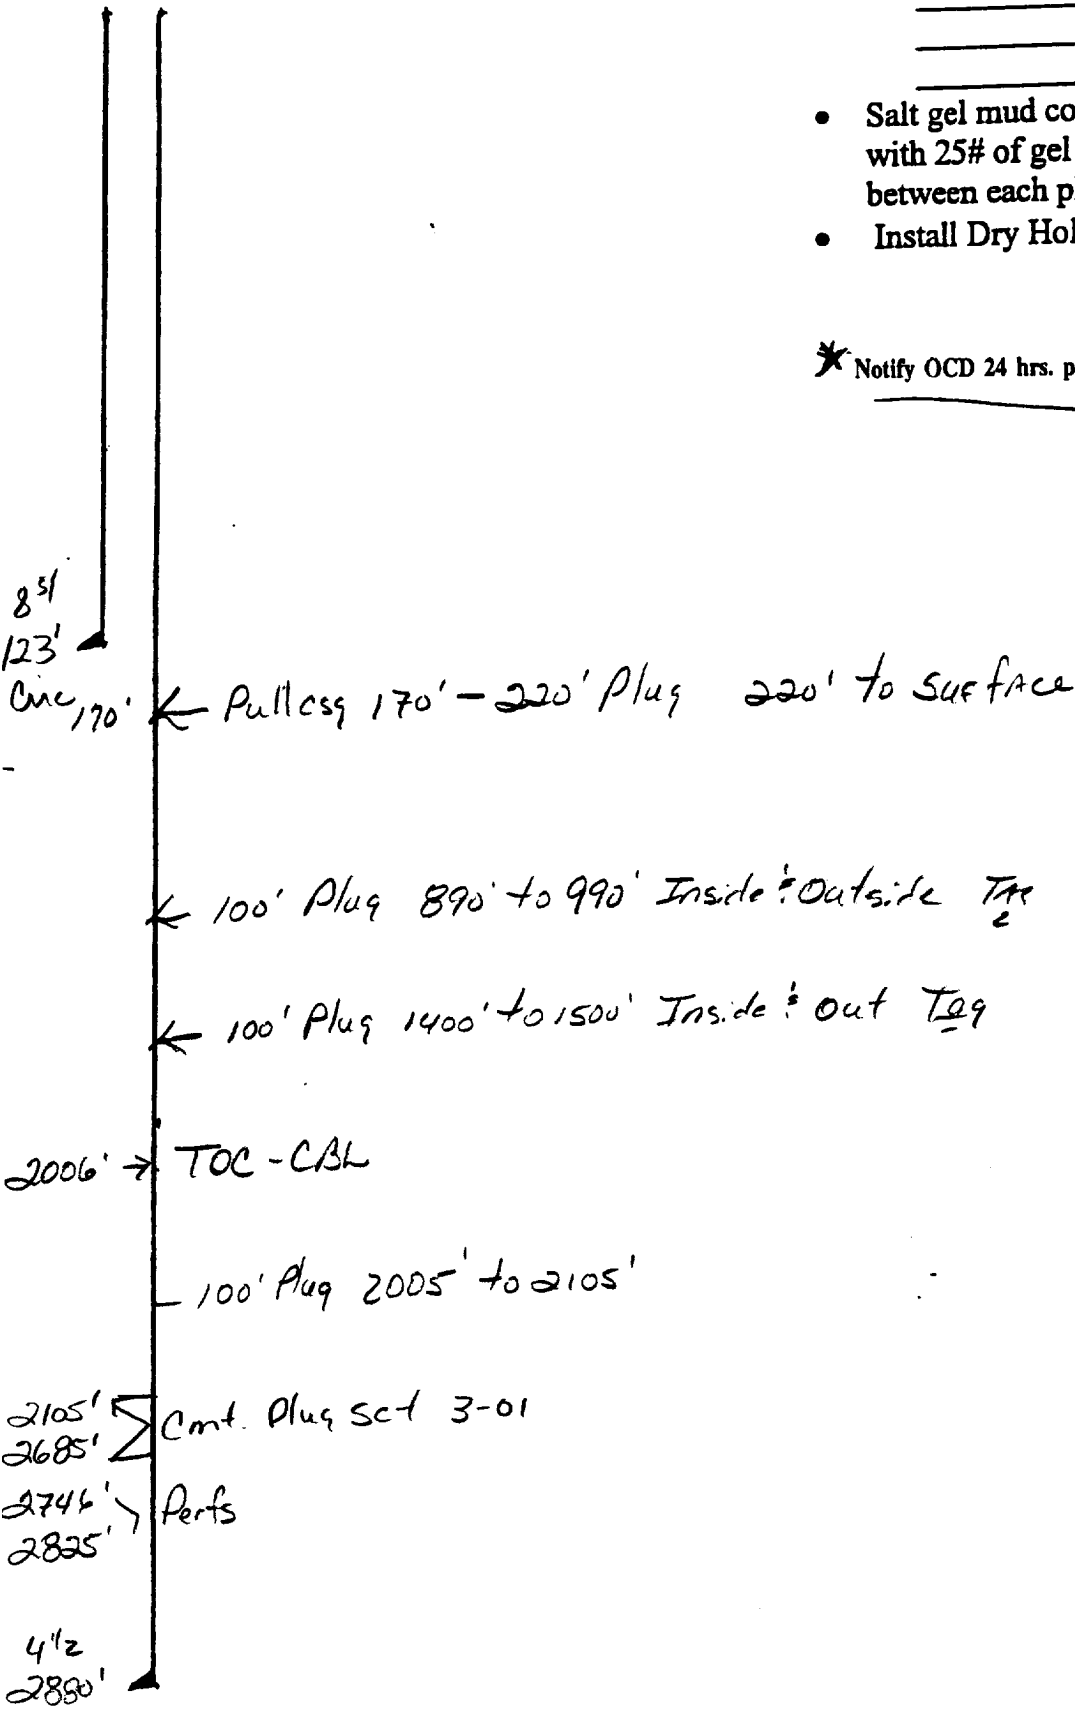 • Salt gel mud co
with 25# of gel
between each p
• Install Dry Hol
* Notify OCD 24 hrs. p
8 5/
123'
Circ
170' ← Pull csg 170' - 220' Plug 220' to Surface
← 100' Plug 890' to 990' Inside & Outside
← 100' Plug 1400' to 1500' Inside & Out Tag
2006' → TOC - CBL
100' Plug 2005' to 2105'
2105'
2685' Cmt. Plug set 3-01
2746' Perfs
2825'
4 1/2
2880'